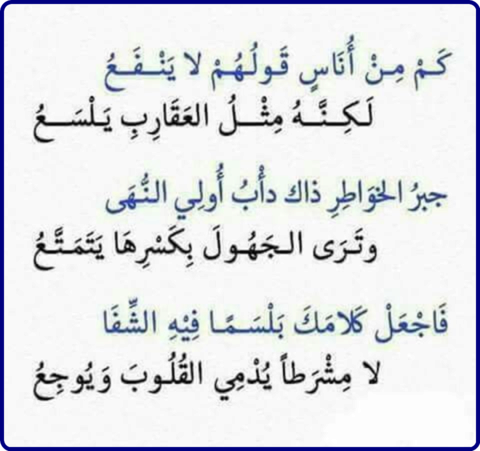 كَمْ مِنْ أُنَاسٍ قَولُهُمْ لا يَنْـفَـعُ
لَـكِـنَّـهُ مِثْـلُ العَقَارِبِ يَـلْسَـعُ
جبرُ الخوَاطِرِ ذاك دأْبُ أُولِي النُّهَى
وتَـرَى الـجَهُـولَ بِكَسْرِهَا يَتَمَتَّـعُ
فَاجْعَلْ كَلامَكَ بَلْسَـمًـا فِيْهِ الشِّفَا
لا مِشْرَطاً يُدْمِي القُلُوبَ وَيُوجِعُ